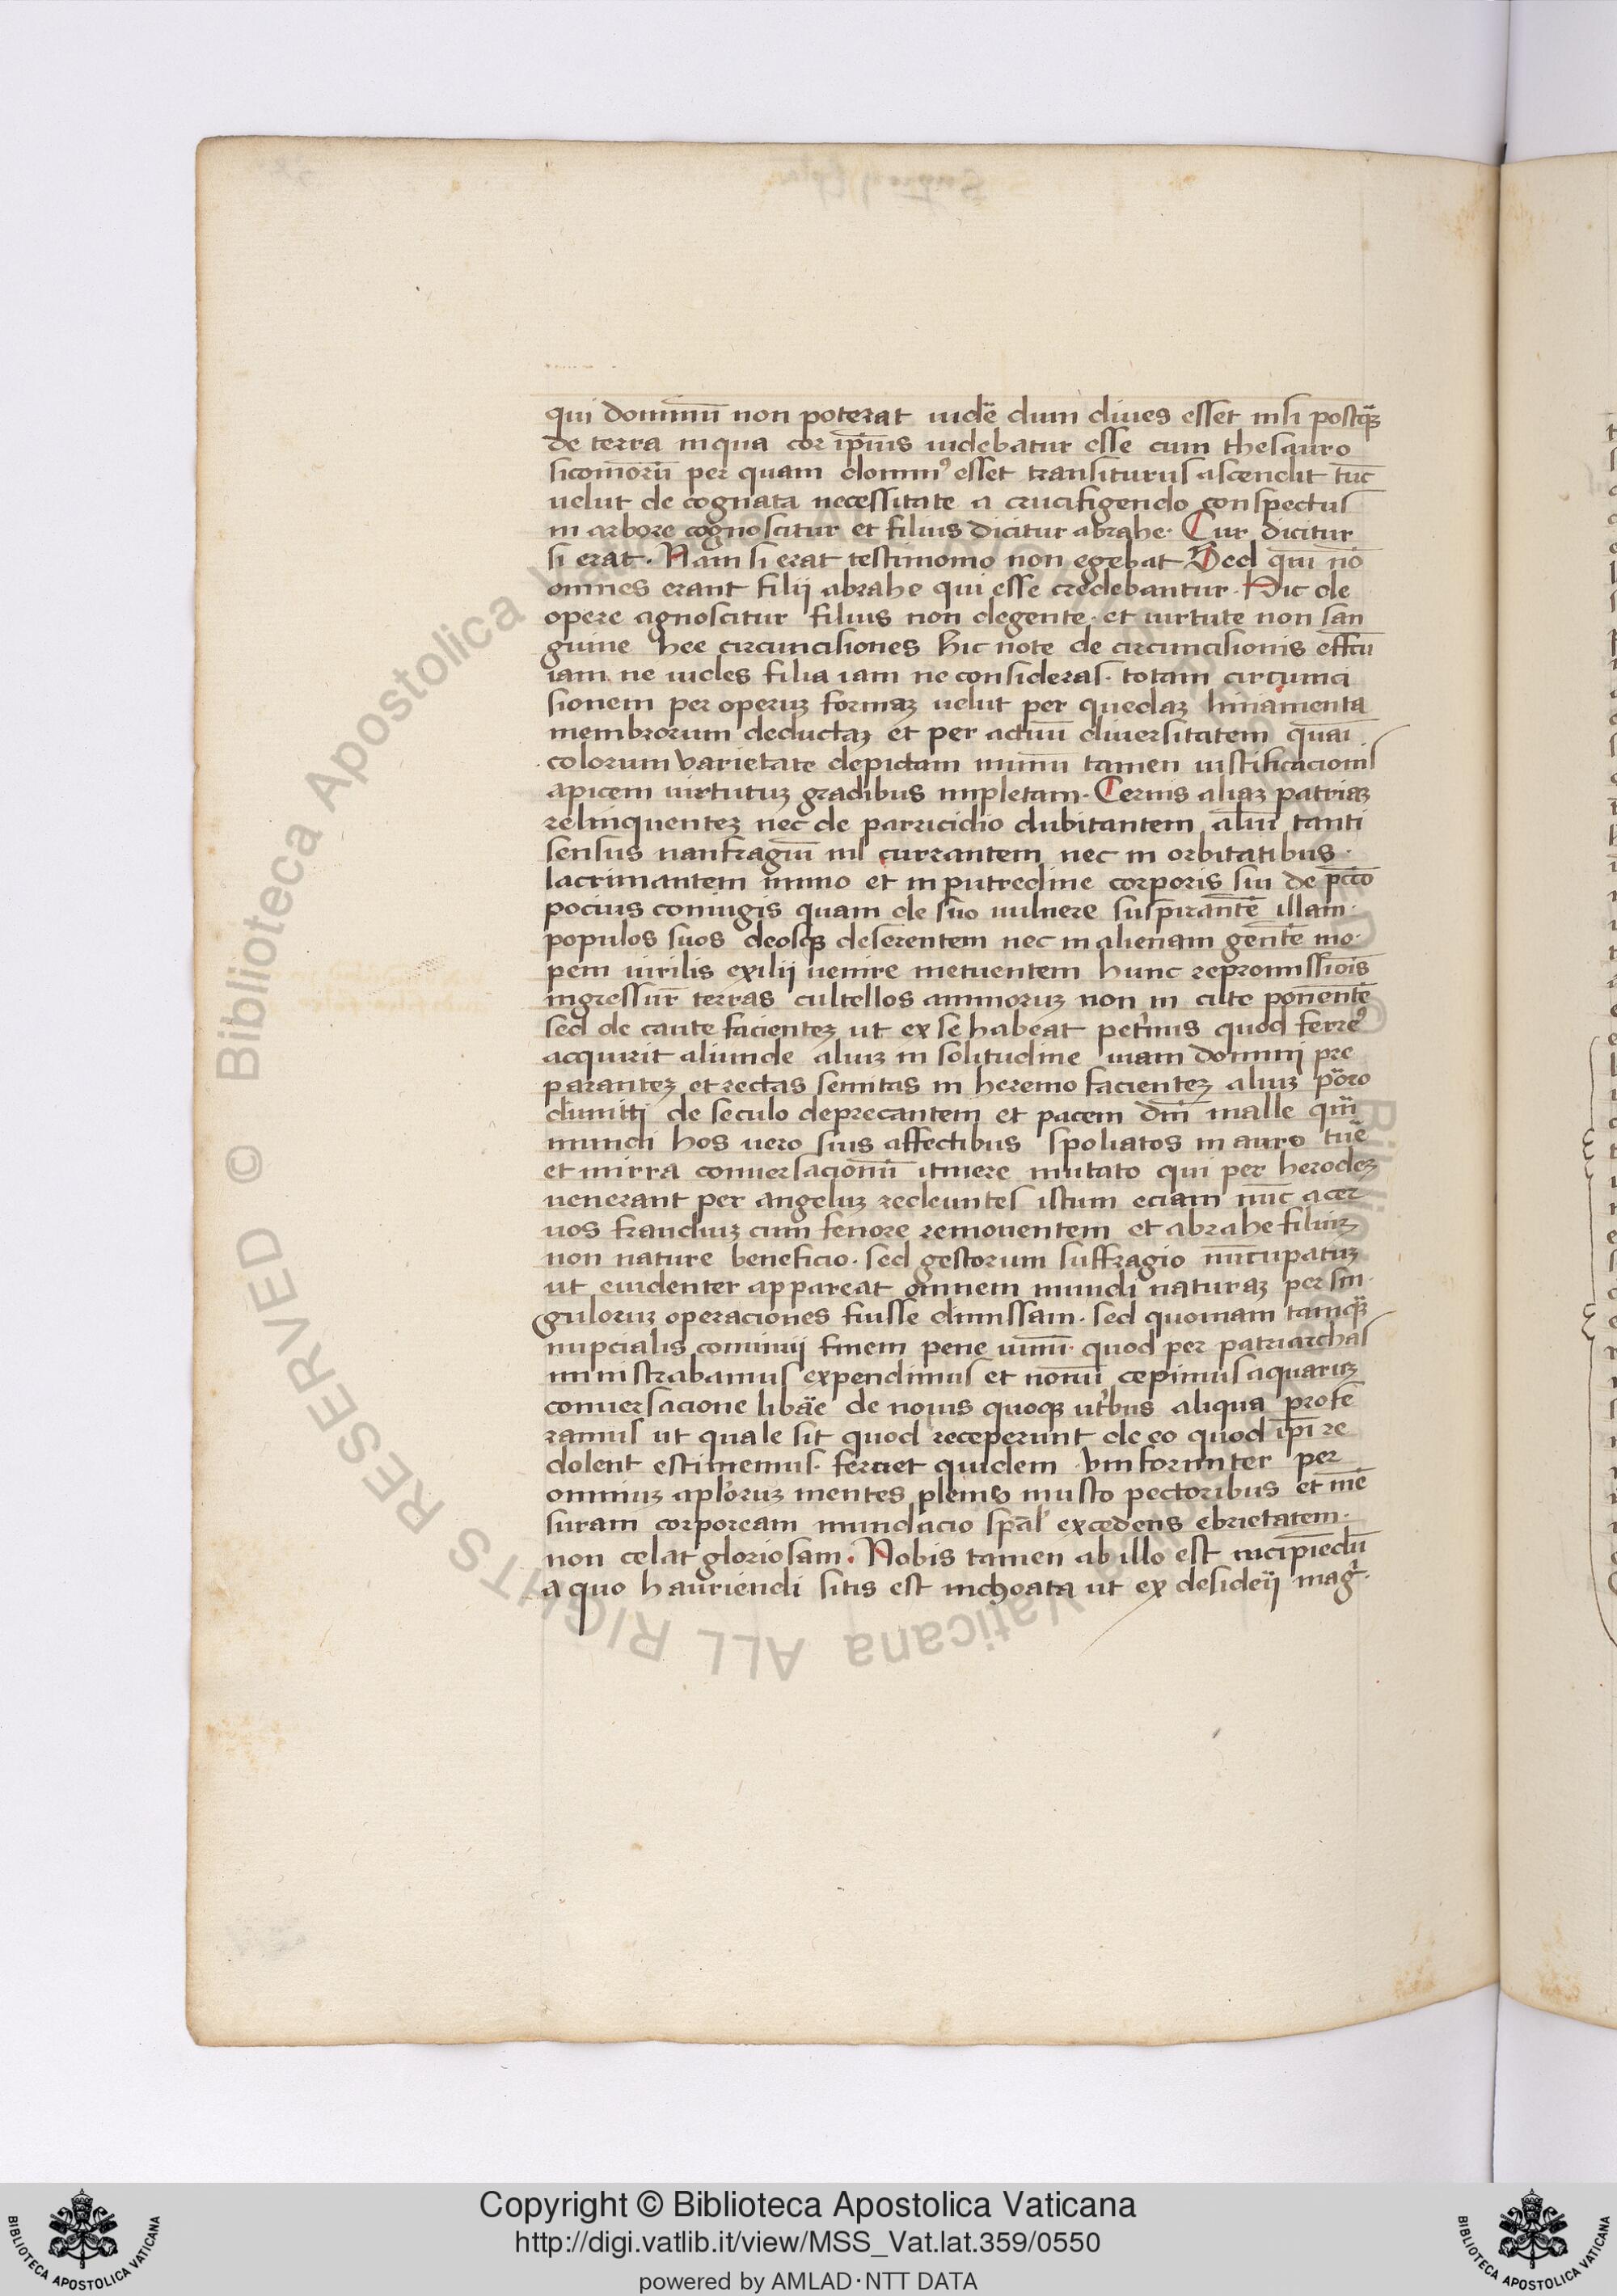 qui dominū non poterat uidē dum diues esset nisi postq̃ꝫ
de terra in qua cor ip̄ius uidebatur esse cum thesauro
sicomorū per quam domin⁹ esset transiturus ascendit tūc
uelut de cognata necessitate a crucifigendo conspectus
in arbore cognoscitur et filius dicitur abrahe· Cur dicitur
si erat· Nam si erat testimonio non egebat Sed qui nō
omnes erant filij abrahe qui esse credebantur· Hic de
opere agnoscitur filius non degente· et uirtute non san
guine hee circuncisiones hic note de circuncisionis effcū
iam ne uides filia iam ne consideras· totam circunci
sionem per operuꝫ formaꝫ uelut per quedaꝫ liniamenta
membrorum deductaꝫ et per actuū diuersitatem quāi
colorum varietate depictam minū tamen iustificacionis
apicem uirtutuꝫ gradibus impletam· Cernis aliaꝫ patriaꝫ
relinquenteꝫ nec de parricidio dubitantem aliū tanti
sensus naufragiū nil currantem nec in orbitatibus·
lacrimantem immo et in putredine corporis sui de pctō
pocius coniugis quam de suo uulnere suspirantē illam·
populos suos deosqꝫ deserentem nec in alienam gentē ino·
pem uirilis exilij uenire metuentem hunc repromissiōis
ingressur̄ terras cultellos animoruꝫ non in cute ponentē
sed de caute facienteꝫ ut ex se habeat petrinus quod ferre⁹
acquirit aliunde aliuꝫ in solitudine uiam domini pre
paranteꝫ et rectas semitas in heremo facienteꝫ aliuꝫ porro
dimitti de seculo deprecantem et pacem dn̄i malle qm̄
mundi hos uero suis affectibus spoliatos in auro tuē
et mirra conuersacionū itinere mutato qui per herodeꝫ
venerant per angeluꝫ redeuntes istum eciam nūc acer
uos frauduꝫ cum fenore remouentem et abrahe filiuꝫ
non nature beneficio· sed gestorum suffragio nūcupatuꝫ
ut euidenter appareat omnem mundi naturaꝫ per sin·
guloruꝫ operaciones fuisse dimissam· sed quoniam tamq̃ꝫ
nupcialis conuiuij finem pene uini· quod per patriarchas
ministrabamus expendimus et nouū cepimus aquaruꝫ
conuersacione libāe de nouis quoqꝫ utribus aliqua profe
ramus ut quale sit quod receperunt de eo quod ip̄i re
dolent estimemus· feruet quidem vniformiter per
omniuꝫ apl'oruꝫ mentes plenis musto pectoribus et mē
suram corpoream mundacio sp̄al' excedens ebrietatem·
non celat gloriosam· Nobis tamen ab illo est incipiēdū
a quo hauriendi sitis est inchoata ut ex desiderij mag·
Copyright © Biblioteca Apostolica Vaticana
http://digi.vatlib.it/view/MSS_Vat.lat.359/0550
powered by AMLAD·NTT DATA
BIBLIOTECA APOSTOLICA VATICANA
BIBLIOTECA APOSTOLICA VATICANA
© Biblioteca Apostolica Vaticana ALL RIGHTS RESERVED